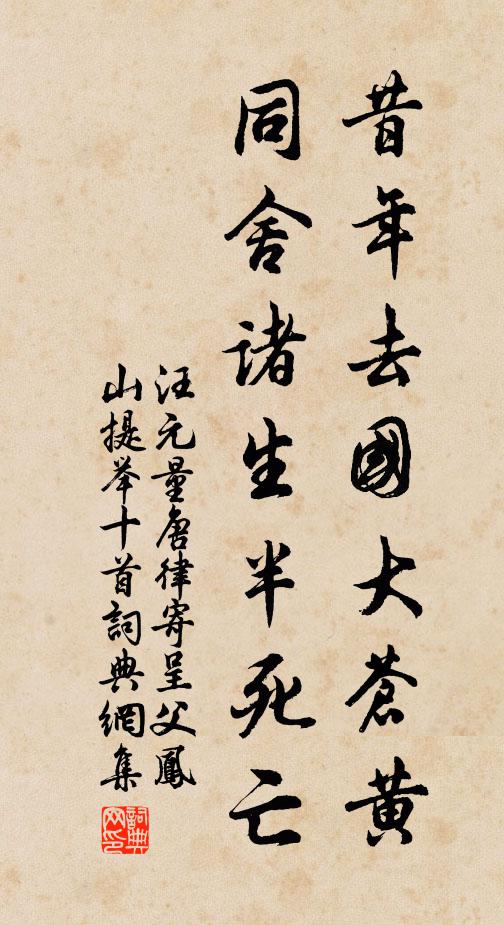 昔年去國大蒼黄
同舍諸生半死亡
汪元量唐律寄呈父鳳
山提举十首詞典網集
詞典网印